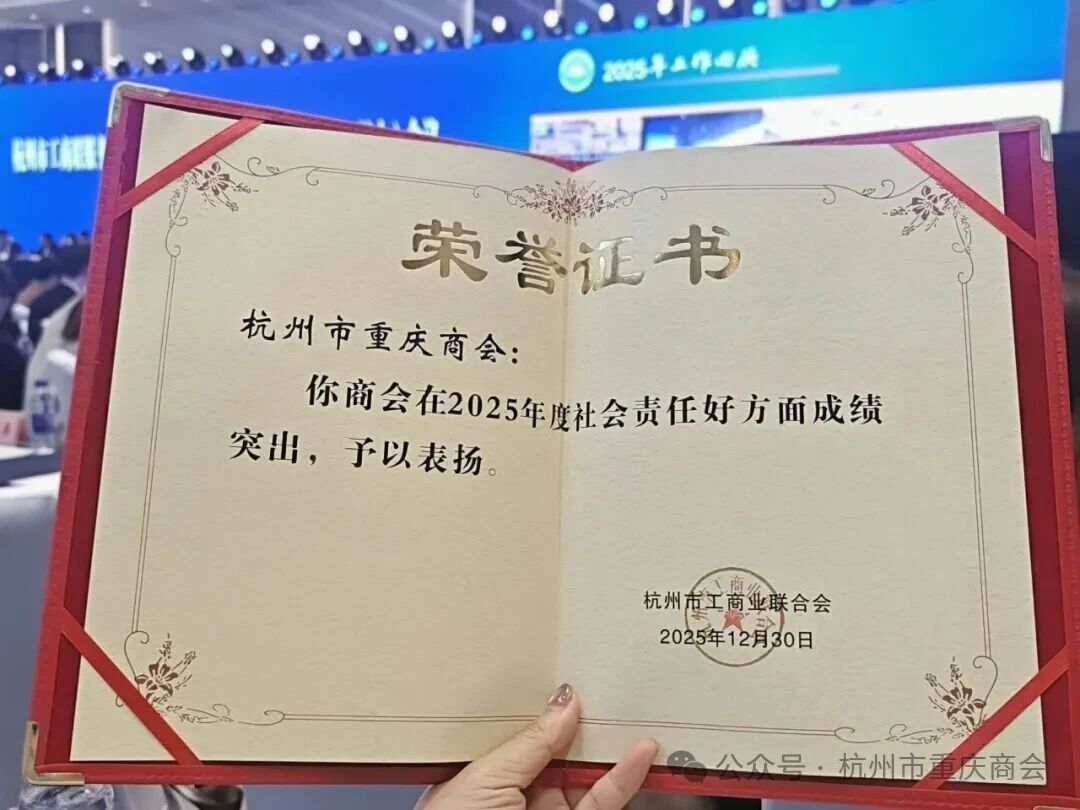 2025年工作回顾
杭州市工商联
荣誉证书
杭州市重庆商会：
你商会在2025年度社会责任好方面成绩
突出，予以表扬。
杭州市工商业联合会
2025年12月30日
公众号·杭州市重庆商会